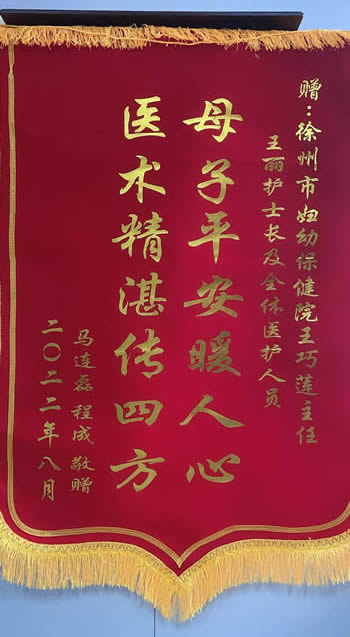 赠：徐州市妇幼保健院王巧莲主任
王丽护士长及全体医护人员
母子平安暖人心
医术精湛传四方
马连磊 程成 敬赠
二〇二二年八月